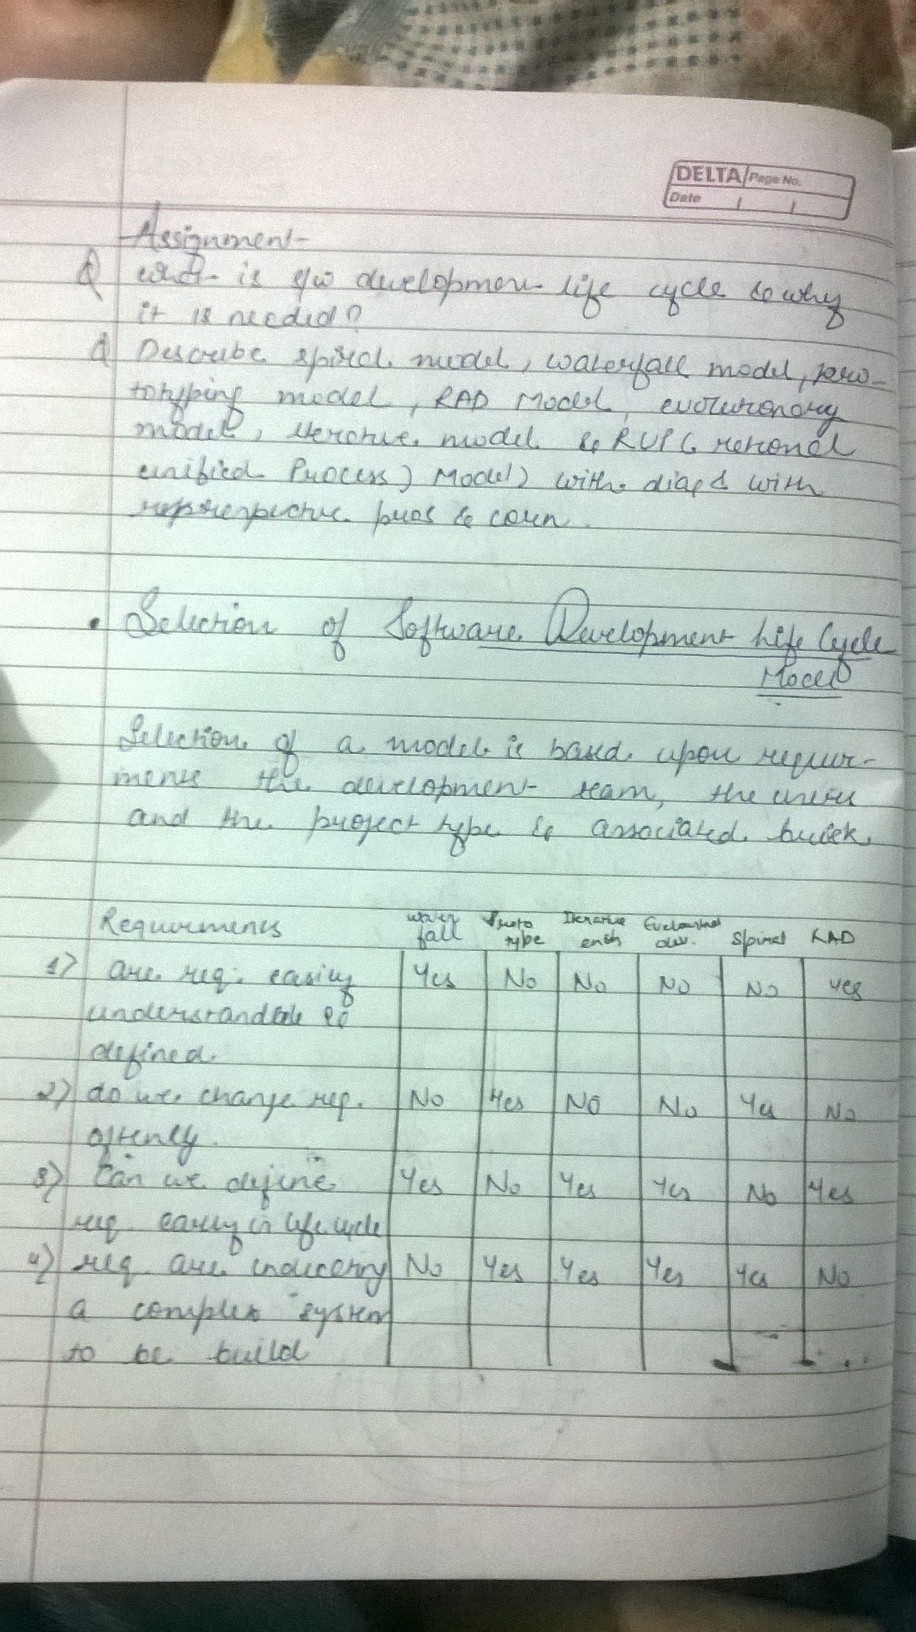 DELTA Page No.
Date
Assignment-
Q what is s/w development life cycle & why
it is needed?
Q Describe spiral model, waterfall model, proto-
totyping model, RAD Model, evolutionary
model, iterative model & RUP ( rational
unified Process) Model) with diag & with
respective pros & cons.
• Selection of Software Development Life Cycle
Model
Selection of a model is based upon requir-
ments the development team, the users
and the project type & associated
Requirements water fall Proto type Iterative enh Evolutionary dev. Spiral RAD
1) are req. easily Yes No No No No Yes
understandable &
defined.
2) do we change req. No Yes No No Yes No
oftenly.
3) Can we define Yes No Yes Yes No Yes
req. early in life cycle
4) req are indicating No Yes Yes Yes Yes No
a complex system
to be build